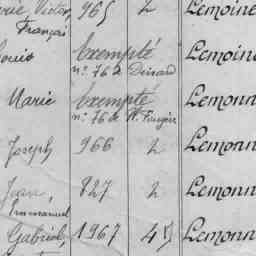 Victor 965 2 Lemoine
Français
Louis Exempté Lemoine
n° 76 à Dinard
Marie Exempté Lemonn
n° 76 de
Joseph 966 2 Lemonn
Jean, 827 2 Lemonn
Emmanuel
Gabriel, 1967 4 Lemonn